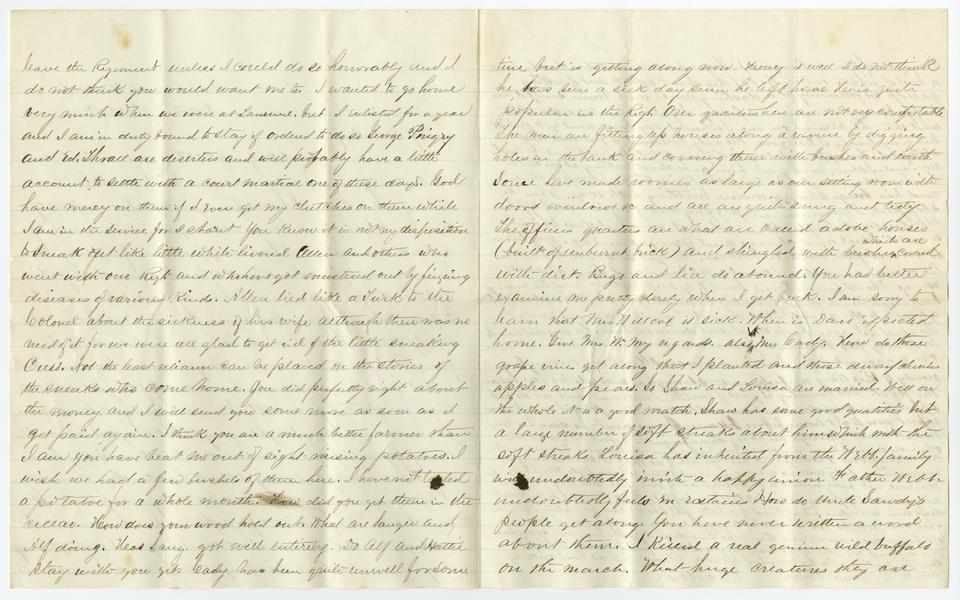 leave the Regiment unless I could do so honorably and I
do not think you would want me to. I wanted to go home
very much when we were at Laurence, but I enlisted for a year
and I am in duty bound to stay if ordered to do so George
and Ed. Thrall are deserters and will probably have a little
account to settle with a court martial one of these days. God
have mercy on them if I Ever get my clutches on them while
I am in the service for I shant. You know it is not my disposition
to sneak off like little white livered Allen and others who
went with our Regt and who have got mustered out by
diseases of various kinds. Allen lied like a Turk to the
Colonel about the sickness of his wife although there was no
need of it for we were all glad to get rid of the little sneaking
Cuss. Not the least reliance can be placed in the stories of
the sneaks who come home. You did perfectly right about
the money and I will send you some more as soon as I
get paid again. I think you are a much better farmer than
I am you have beat me out of sight raising potatoes. I
wish we had a few bushels of them here. I have not tasted
a potatoe for a whole month. How did you get them in the
cellar. How does your wood hold out. What are and
Alf doing. Has got well entirely. Do Alf and Hattie
stay with you yet. Cady has been quite unwell for some
time but is getting along now. Henry is well I do not think
he has seen a sick day since he left home. He is quite
popular in the Regt. Our quarters here are not very comfortable
The men are fitting up houses along a ravine by digging
holes in the bank and covering them with bushes and earth
Some have made rooms as large as our setting room with
doors windows &c and are quite snug and tasty
The officers quarters are what are called adobe houses
(built of unburnt brick) and shingled with bushes which are covered
with dirt. Bugs and lice do abound. You had better
examine me pretty closely when I get back. I am sorry to
learn that Mrs Wilcox is sick. When is Dave expected
home. Give Mrs W. my regards. also Mrs Cady. How do those
grape vines get along that I planted and those dwarf
apples and pears. So Shaw and Louisa are married. Well on
the whole it is a good match. Shaw has some good qualities but
a large number of soft streaks about him which with the
soft streaks Louisa has inherited from the Webb family
will undoubtedly make a happy union. Father Webb
undoubtedly feels in extacies How do Uncle
people get along. You have never written a word
about them. I killed a real genuine wild buffalo
on the march. What huge creatures they are